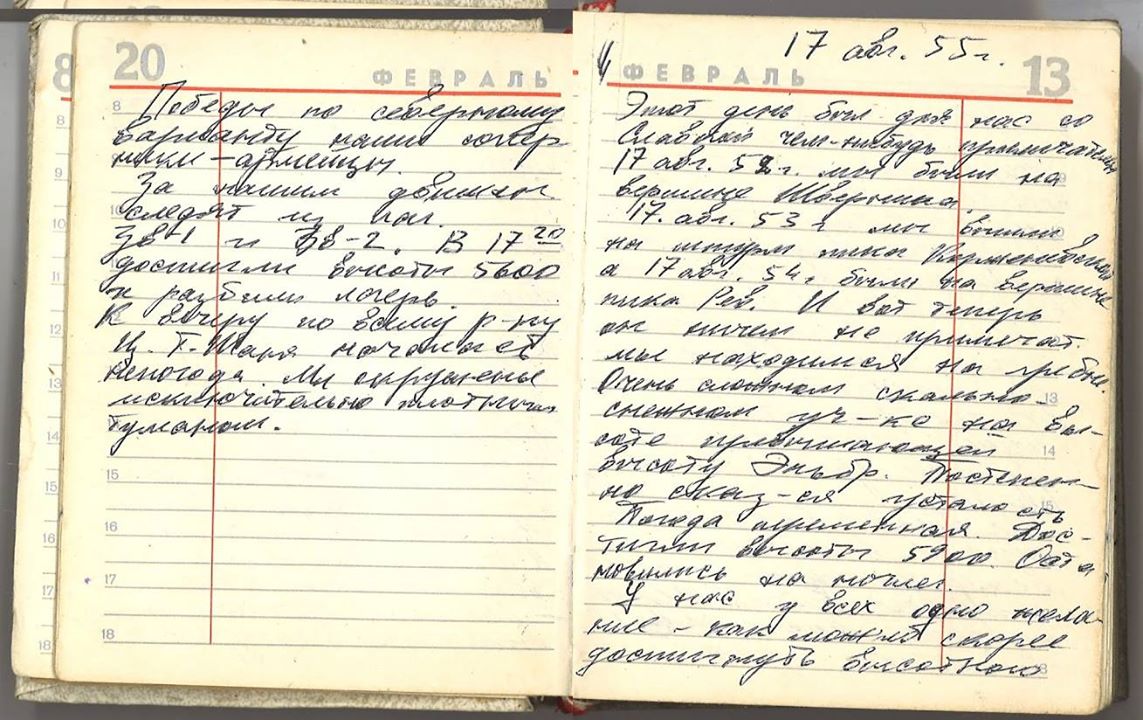 20
ФЕВРАЛЬ
Победы по северному
варианту наши сопер
ники – армейцы.
За нашим движ
следят из лаг.
Зв-1 и Зв-2. В 17 20
достигли высоты 5600
и разбили лагерь.
К вечеру по всему р-ну
началась
непогода. Мы окружены
исключительно плотным
туманом.
8
9
10
11
12
13
14
15
16
17
18
17 авг. 55 г.
ФЕВРАЛЬ
13
Этот день был для нас со
Славкой чем-нибудь примечателен
17 авг. 52 г. мы были на
вершине Шверника.
17. авг. 53 г мы вышли
на штурм пика Корженевской
а 17 авг. 54 г. были на вершине
пика Рев. И вот теперь
он ничем не примечат.
мы находимся на гребне.
Очень сложном скально-
снежном уч-ке на вы-
соте превышающей
высоту Эльбр. Постепен-
но сказ-ся усталость
Погода переменная. Дос-
тигли высоты 5900. Оста
новились на ночлег.
У нас у всех одно жела-
ние – как можно скорее
достигнуть высотного